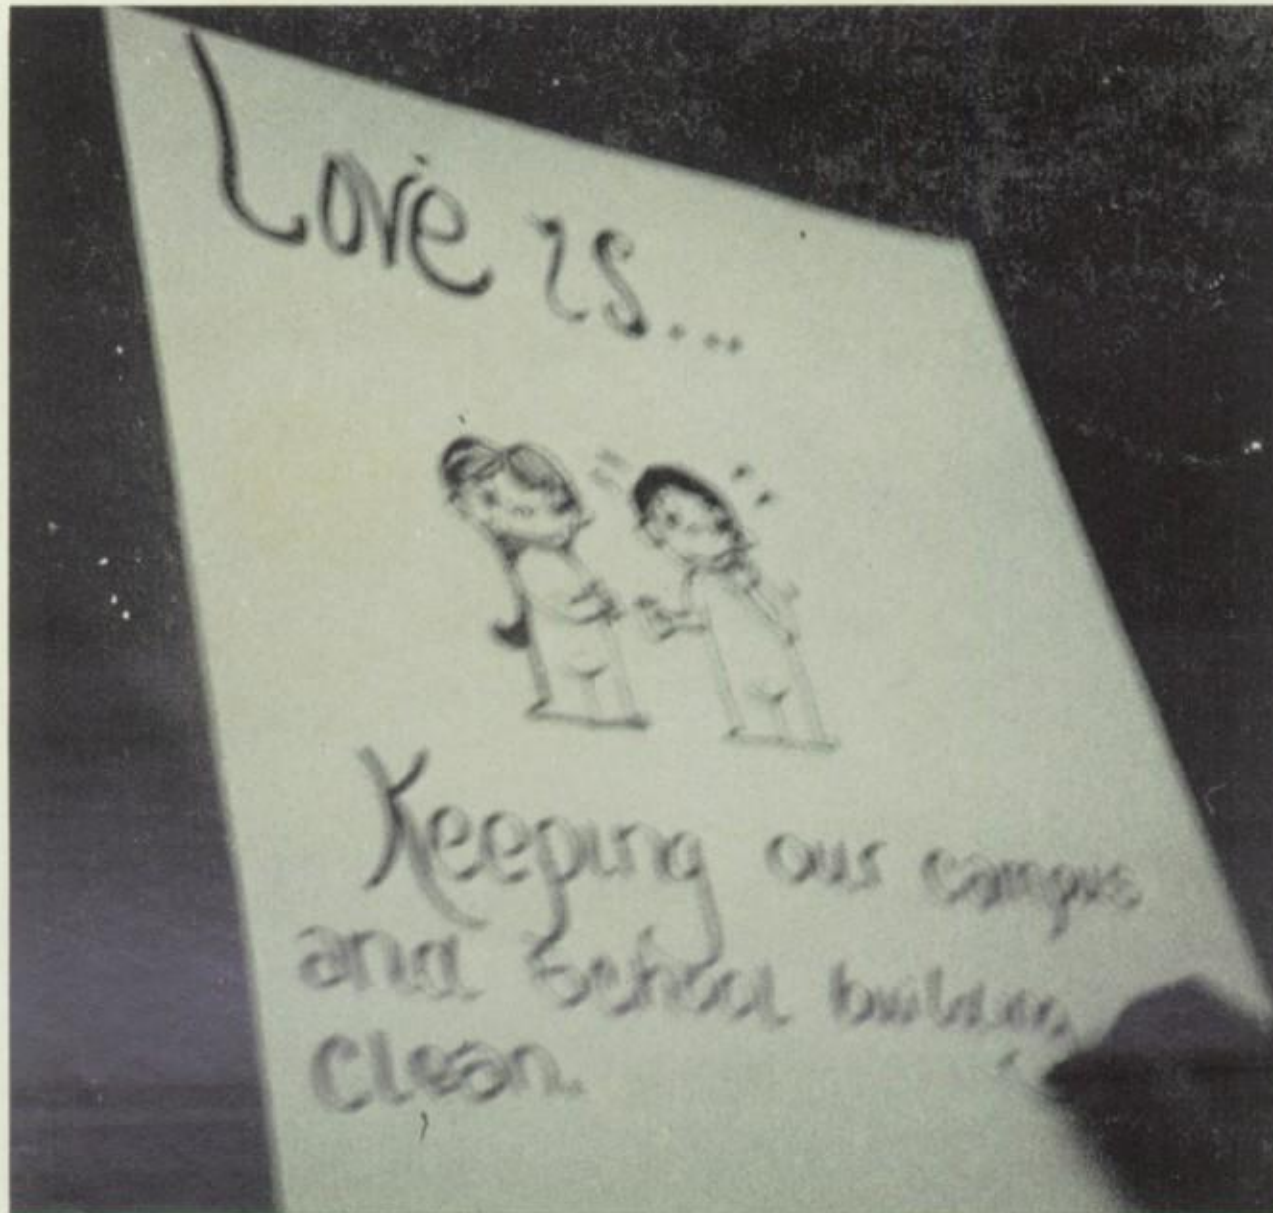 Love is...
Keeping our campus
and School building
Clean.